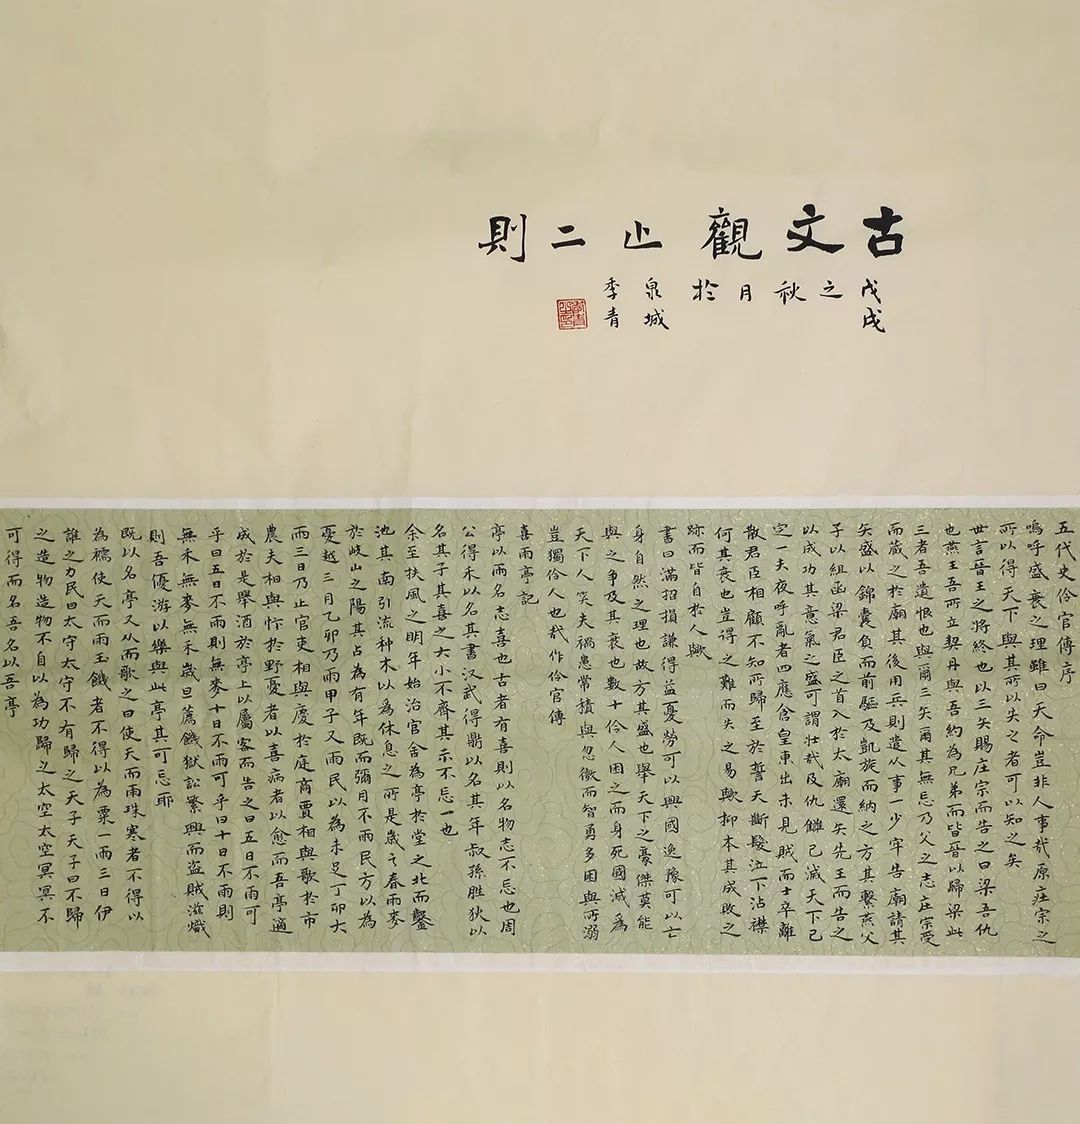 古文觀止二則
戊戌之秋月於泉城
季青
五代史伶官傳序
嗚呼盛衰之理雖曰天命豈非人事哉原莊宗之
所以得天下與其所以失之者可以知之矣
世言晉王之將終也以三矢賜庄宗而告之曰梁吾仇
也燕王吾所立契丹與吾約為兄弟而皆晉以歸梁此
三者吾遺恨也與爾三矢爾其無忘乃父之志庄宗受
而藏之於廟其後用兵則遣從事一少牢告廟請其
矢盛以錦囊負而前驅及凱旋而納之方其繫燕父
子以組函梁君臣之首入於太廟還矢先王而告之
以成功其意氣之盛可謂壯哉及仇讎已滅天下已
定一夫夜呼亂者四應倉皇東出未見賊而士卒離
散君臣相顧不知所歸至於誓天斷髮泣下沾襟
何其衰也豈得之難而失之易歟抑本其成敗之
跡而皆自於人歟
書曰滿招損謙得益憂勞可以興國逸豫可以亡
身自然之理也故方其盛也舉天下之豪傑莫能
與之爭及其衰也數十伶人困之而身死國滅為
天下人笑夫禍患常積與忽微而智勇多困與所溺
豈獨伶人也哉作伶官傳
喜雨亭記
亭以雨名志喜也古者有喜則以名物志不忘也周
公得禾以名其書汉武得鼎以名其年叔孫胜狄以
名其子其喜之大小不齊其示不忘一也
余至扶風之明年始治官舍為亭於堂之北而鑿
池其南引流种木以為休息之所是歲之春雨麥
於岐山之陽其占為有年既而彌月不雨民方以為
憂越三月乙卯乃雨甲子又雨民以為未足丁卯大
雨三日乃止官吏相與慶於庭商賈相與歌於市
農夫相與忭於野憂者以喜病者以愈而吾亭適
成於是舉酒於亭上以屬客而告之曰五日不雨可
乎曰五日不雨則無麥十日不雨可乎曰十日不雨則
無禾無麥無禾歲旦薦饑獄訟繁興而盜賊滋熾
則吾優游以樂與此亭其可忘耶
既以名亭又从而歌之曰使天而雨珠寒者不得以
為襦使天而雨玉饑者不得以為粟一雨三日伊
誰之力民曰太守太守不有歸之天子天子曰不歸
之造物造物不自以為功歸之太空太空冥冥不
可得而名吾名以吾亭